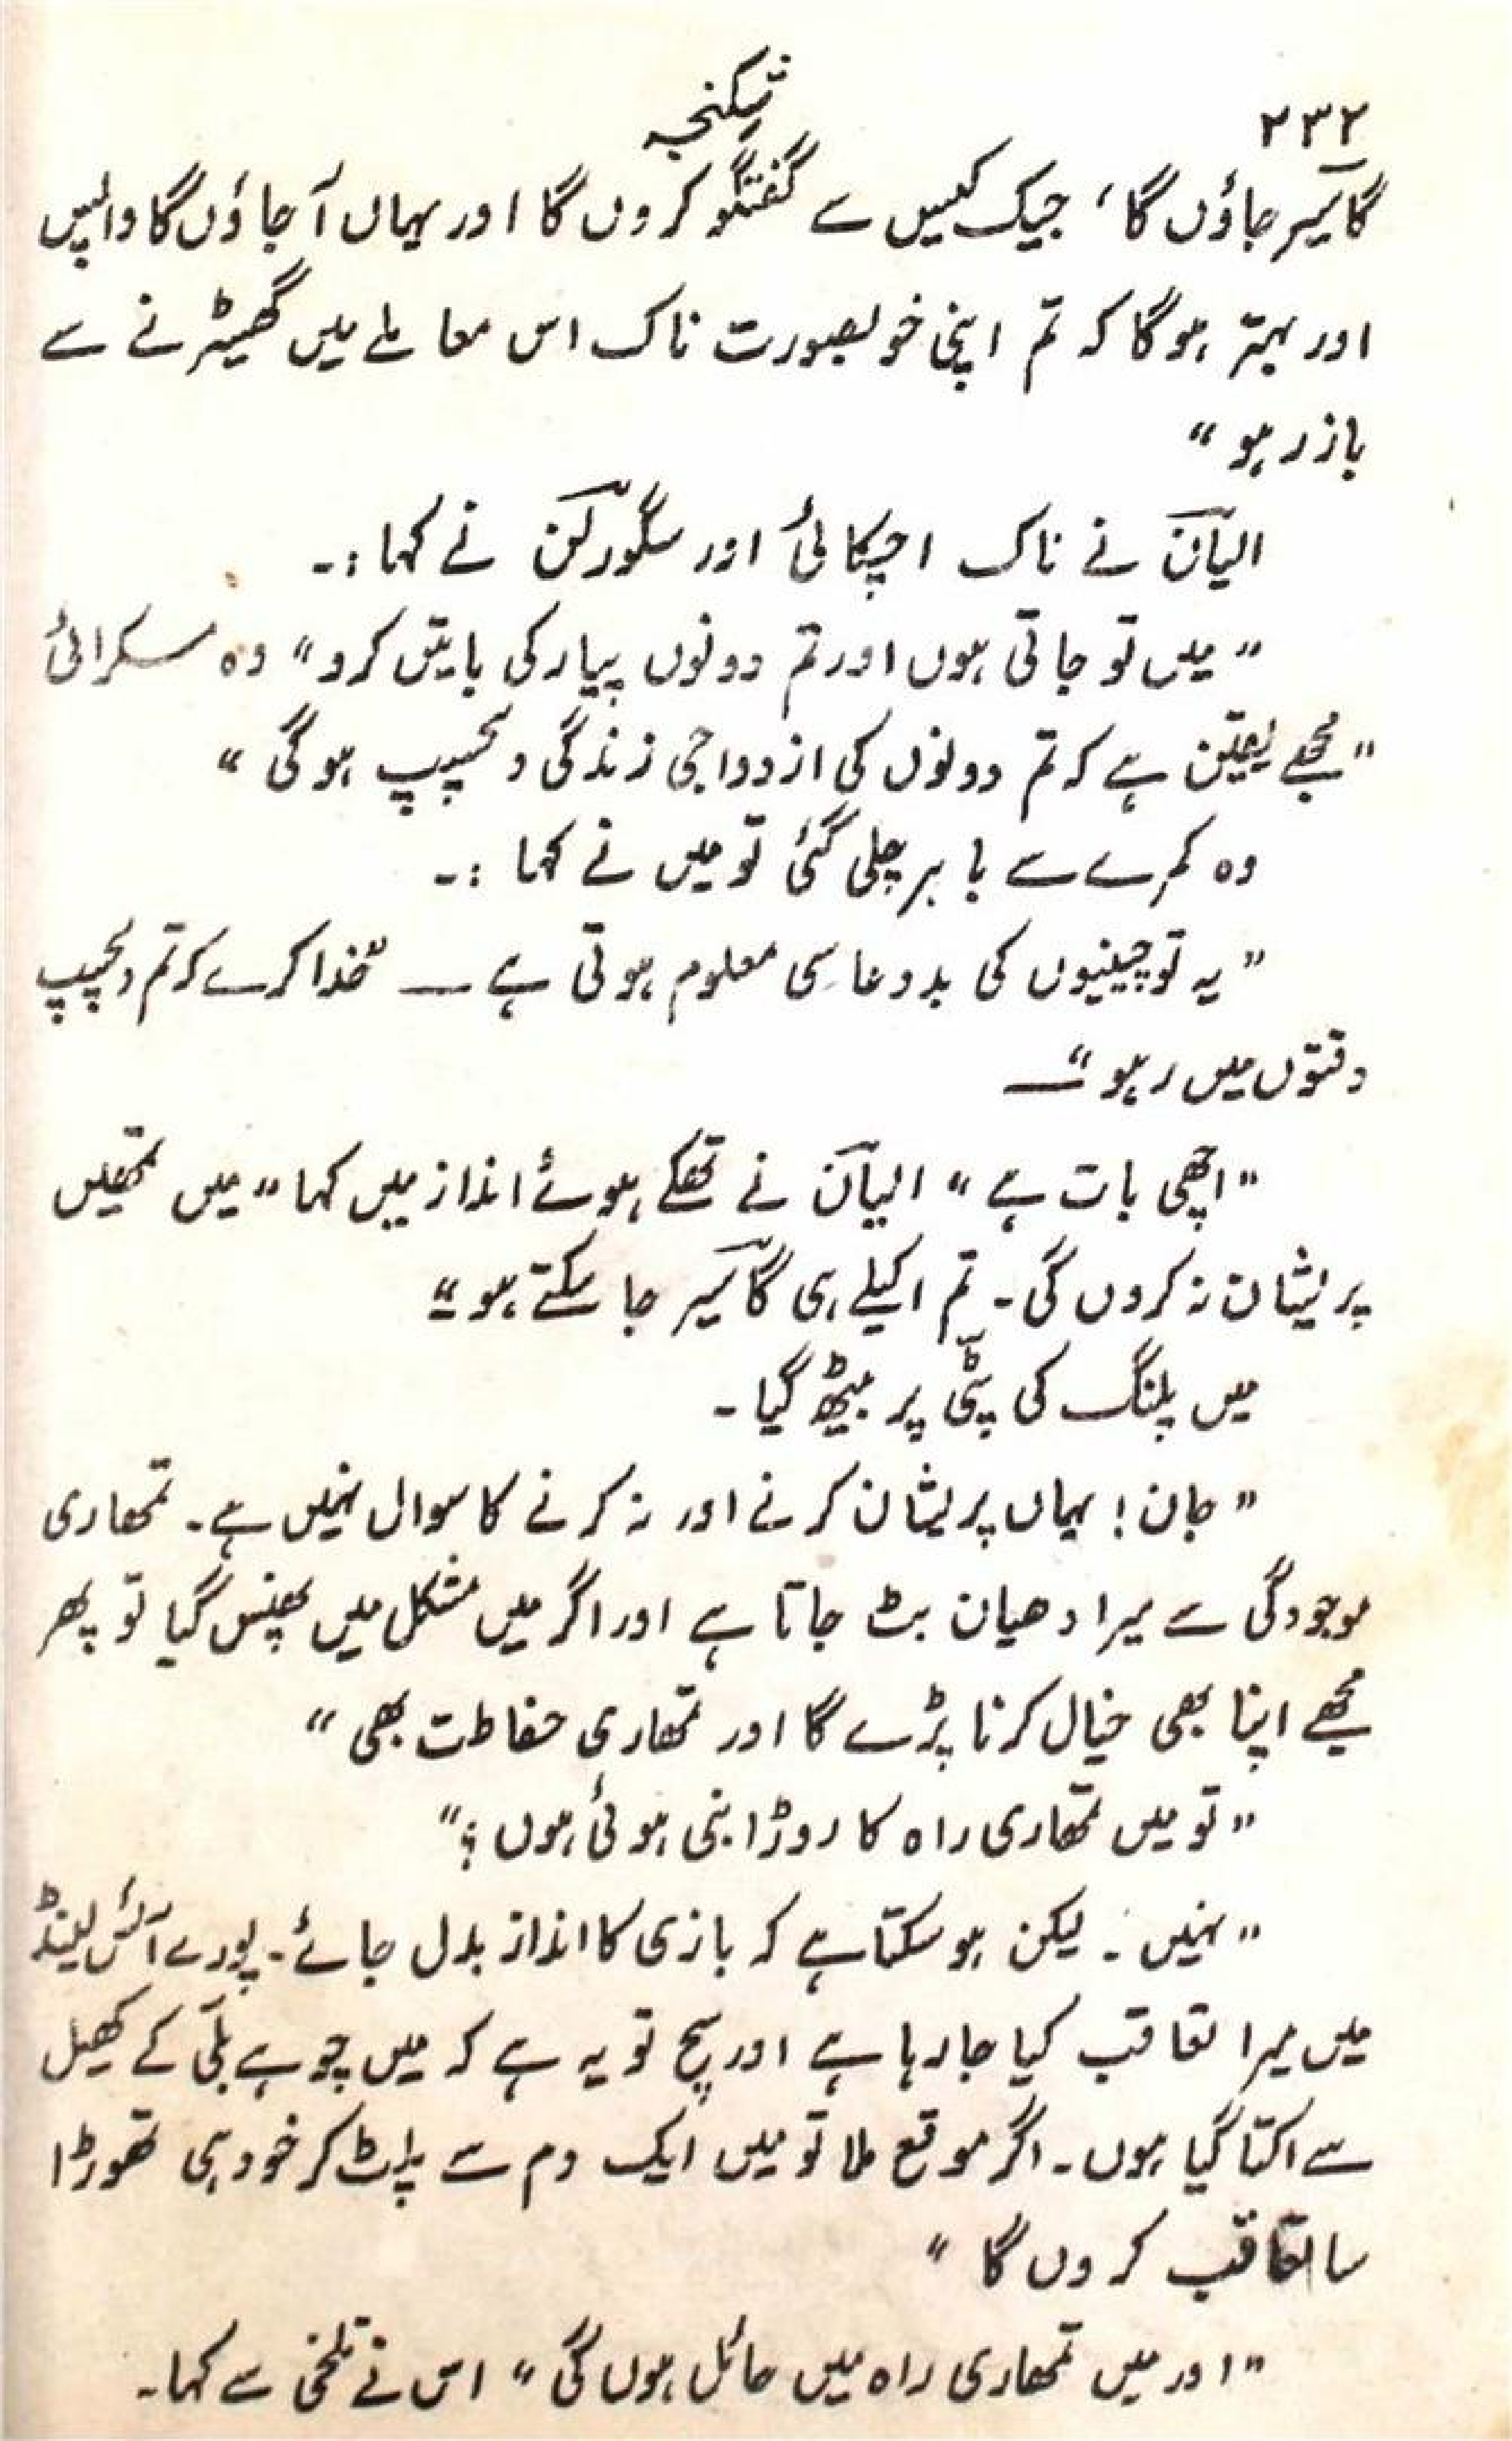 ۲۳۲
شکنجہ
گاسیر جاؤں گا، جیک کیس سے گفتگو کروں گا اور یہاں آ جاؤں گا واپس
اور بہتر ہوگا کہ تم اپنی خوبصورت ناک اس معاملے میں گھیڑنے سے
باز رہو“
الیان نے ناک اچکائی اور سگورلن نے کہا :۔
”میں تو جاتی ہوں اور تم دونوں پیار کی باتیں کرو“ وہ مسکرائی
”مجھے یقین ہے کہ تم دونوں کی ازدواجی زندگی دلچسپ ہوگی“
وہ کمرے سے باہر چلی گئی تو میں نے کہا :۔
”یہ تو چینیوں کی بددعا سی معلوم ہوتی ہے ـــ خدا کرے کہ تم دلچسپ
وقتوں میں رہو“ ـــ
”اچھی بات ہے“ الیان نے تھکے ہوئے انداز میں کہا ”میں تمھیں
پریشان نہ کروں گی۔ تم اکیلے ہی گاسیر جا سکتے ہو“
میں پلنگ کی پٹّی پر بیٹھ گیا۔
”جان! یہاں پریشان کرنے اور نہ کرنے کا سوال نہیں ہے۔ تمھاری
موجودگی سے میرا دھیان بٹ جاتا ہے اور اگر میں مشکل میں پھنس گیا تو پھر
مجھے اپنا بھی خیال کرنا پڑے گا اور تمھاری حفاظت بھی“
”تو میں تمھاری راہ کا روڑا بنی ہوئی ہوں؟“
”نہیں۔ لیکن ہو سکتا ہے کہ بازی کا انداز بدل جائے۔ پورے آئس لینڈ
میں میرا تعاقب کیا جا رہا ہے اور سچ تو یہ ہے کہ میں چوہے بلّی کے کھیل
سے اکتا گیا ہوں۔ اگر موقع ملا تو میں ایک دم سے پلٹ کر خود ہی تھوڑا
سا تعاقب کروں گا“
”اور میں تمھاری راہ میں حائل ہوں گی“ اس نے تلخی سے کہا۔